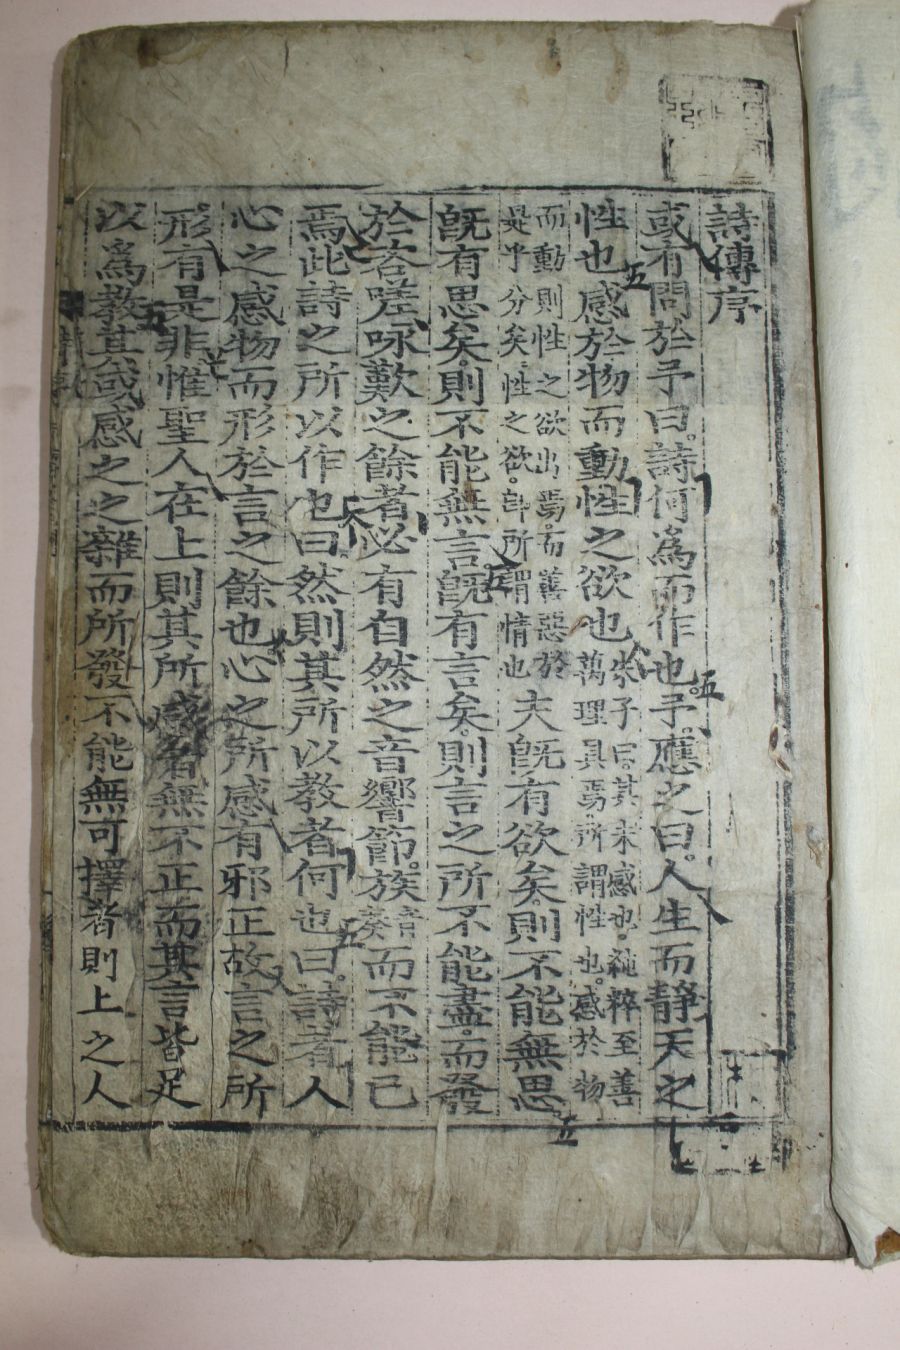 詩傳序
或有問於予曰詩何爲而作也予應之曰人生而靜天之
性也感於物而動性之欲也朱子曰其未感也純粹至善
萬理具焉所謂性也感於物
而動則性之欲出焉而善惡於
是乎分矣性之欲卽所謂情也夫旣有欲矣則不能無思
旣有思矣則不能無言旣有言矣則言之所不能盡而發
於咨嗟咏歎之餘者必有自然之音響節族音奏而不能已
焉此詩之所以作也曰然則其所以教者何也曰詩者人
心之感物而形於言之餘也心之所感有邪正故言之所
形有是非惟聖人在上則其所感者無不正而其言皆足
以爲教其或感之之雜而所發不能無可擇者則上之人